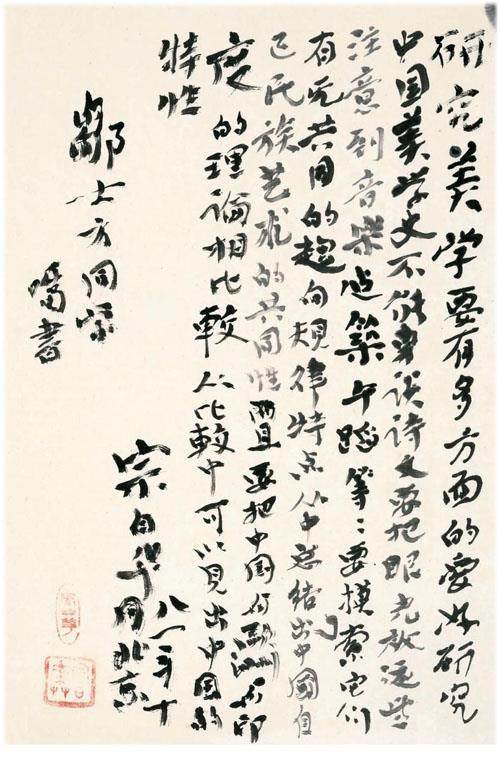 研究美学要有多方面的爱好研究
中国美学史不能专谈诗文要把眼光放远些
注意到音乐建筑午蹈等等要摸索它们
有无共同的趋向规律特点从中总结出中国自
己民族艺术的共同性而且要把中国与欧洲与印
度的理论相比较从比较中可以见出中国的
特性
邹士方同学
嘱书
宗白华
八一年十
月北京